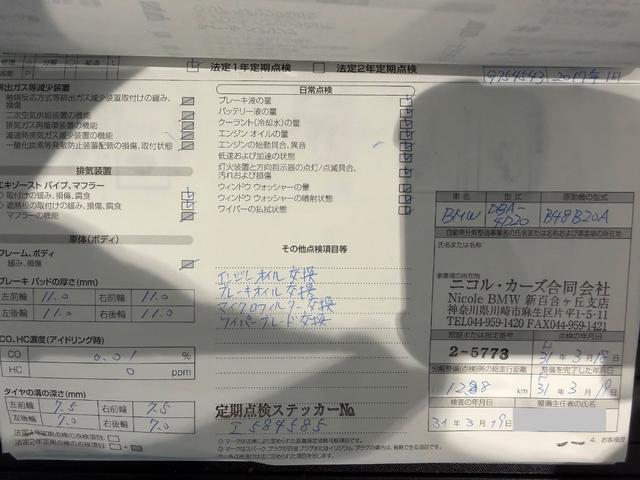 法定1年定期点検 法定2年定期点検
9754543 2017年1月
排出ガス等減少装置
触媒反応方式等排出ガス減少装置取付けの緩み、損傷
二次空気供給装置の機能
排気ガス再循環装置の機能
減速時排気ガス減少装置の機能
一酸化炭素等発散防止装置配管の損傷、取付状態
排気装置
エキゾースト パイプ、マフラー
取付けの緩み、損傷、腐食
遮熱板の取付けの緩み、損傷、腐食
マフラーの機能
車体(ボディ)
フレーム、ボディ
緩み、損傷
ブレーキ パッドの厚さ(mm)
左前輪 11.0 右前輪 11.0
左後輪 11.0 右後輪 11.0
CO、HC濃度(アイドリング時)
CO 0.01 %
HC 0 ppm
タイヤの溝の深さ(mm)
左前輪 7.5 右前輪 7.5
左後輪 7.0 右後輪 7.0
法定1年定期点検の点検項目:
法定2年定期点検の点検項目:
日常点検
ブレーキ液の量
バッテリー液の量
クーラント(冷却水)の量
エンジン オイルの量
エンジンの始動具合、異音
低速および加速の状態
灯火装置と方向指示器の点灯/点滅具合、
汚れおよび損傷
ウィンドウ ウォッシャーの量
ウィンドウ ウォッシャーの噴射状態
ワイパーの払拭状態
その他点検項目等
エンジンオイル交換
ブレーキオイル交換
マイクロフィルター交換
ワイパーブレード交換
定期点検ステッカーNo
I 584585
車名 型式 原動機の型式
BMW DBA-4D20 B48B20A
自動車分解整備事業者の氏名または名称および事業場の所在地
氏名または名称
事業場の所在地
ニコル・カーズ合同会社
Nicole BMW 新百合ヶ丘支店
神奈川県川崎市麻生区片平1-5-11
TEL044-959-1420 FAX044-959-1421
認証または指定番号 点検の年月日
2-5773 H31年3月18日
分解整備(点検)時の総走行距離 整備を完了した年月日
km H31年3月19日
検査の年月日 整備主任者の氏名
31年3月19日
4. お客様控